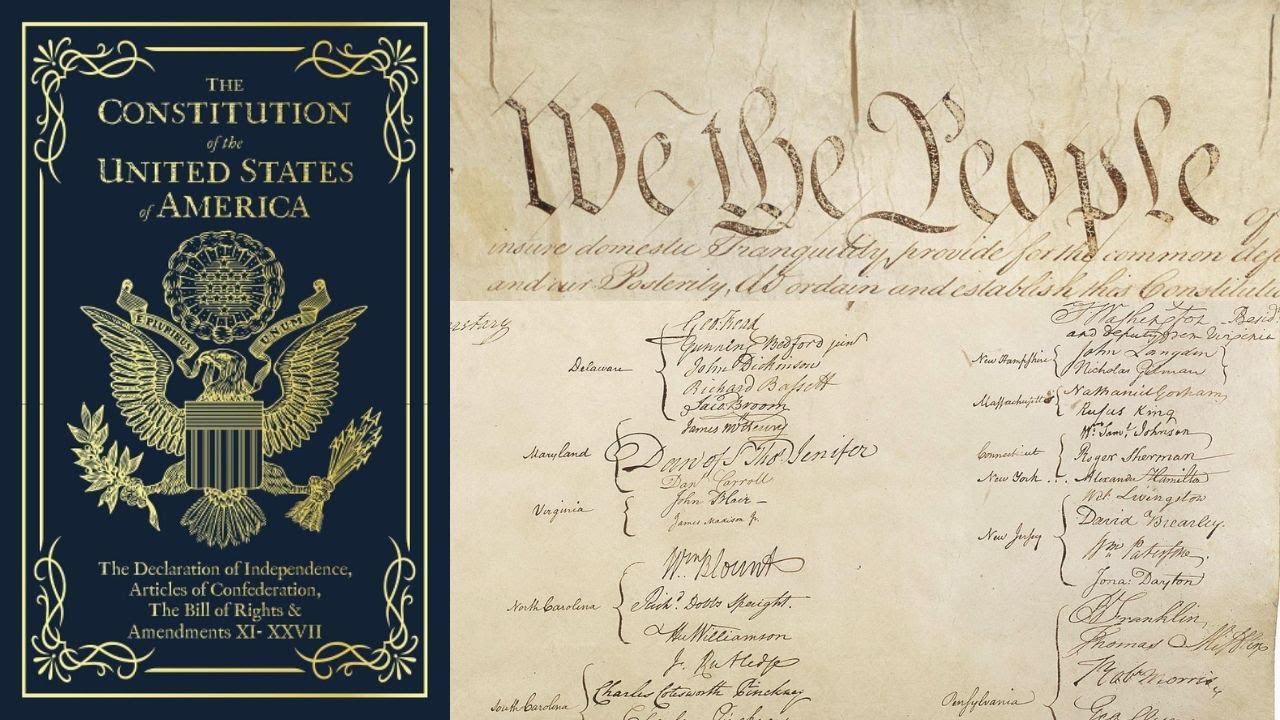 THE
CONSTITUTION
of the
UNITED STATES
of AMERICA
E PLURIBUS UNUM
The Declaration of Independence,
Articles of Confederation,
The Bill of Rights &
Amendments XI- XXVII
We the People
insure domestic Tranquility, provide for the common
and our Posterity, do ordain and establish this
Delaware
Geo: Read
Gunning Bedford jun
John Dickinson
Richard Bassett
Jaco: Broom
Maryland
James McHenry
Dan of St Thos. Jenifer
Danl. Carroll
Virginia
John Blair
James Madison Jr.
North Carolina
Wm Blount
Richd. Dobbs Spaight.
Hu Williamson
South Carolina
J. Rutledge
Charles Cotesworth Pinckney
Washington
and deputy from Virginia
New Hampshire
John Langdon
Nicholas Gilman
Massachusetts
Nathaniel Gorham
Rufus King
Connecticut
Wm. Saml. Johnson
Roger Sherman
New York . . . Alexander Hamilton
New Jersey
Wil: Livingston
David Brearley.
Wm. Paterson.
Jona: Dayton
Pensylvania
B Franklin
Thomas Mifflin
Robt Morris